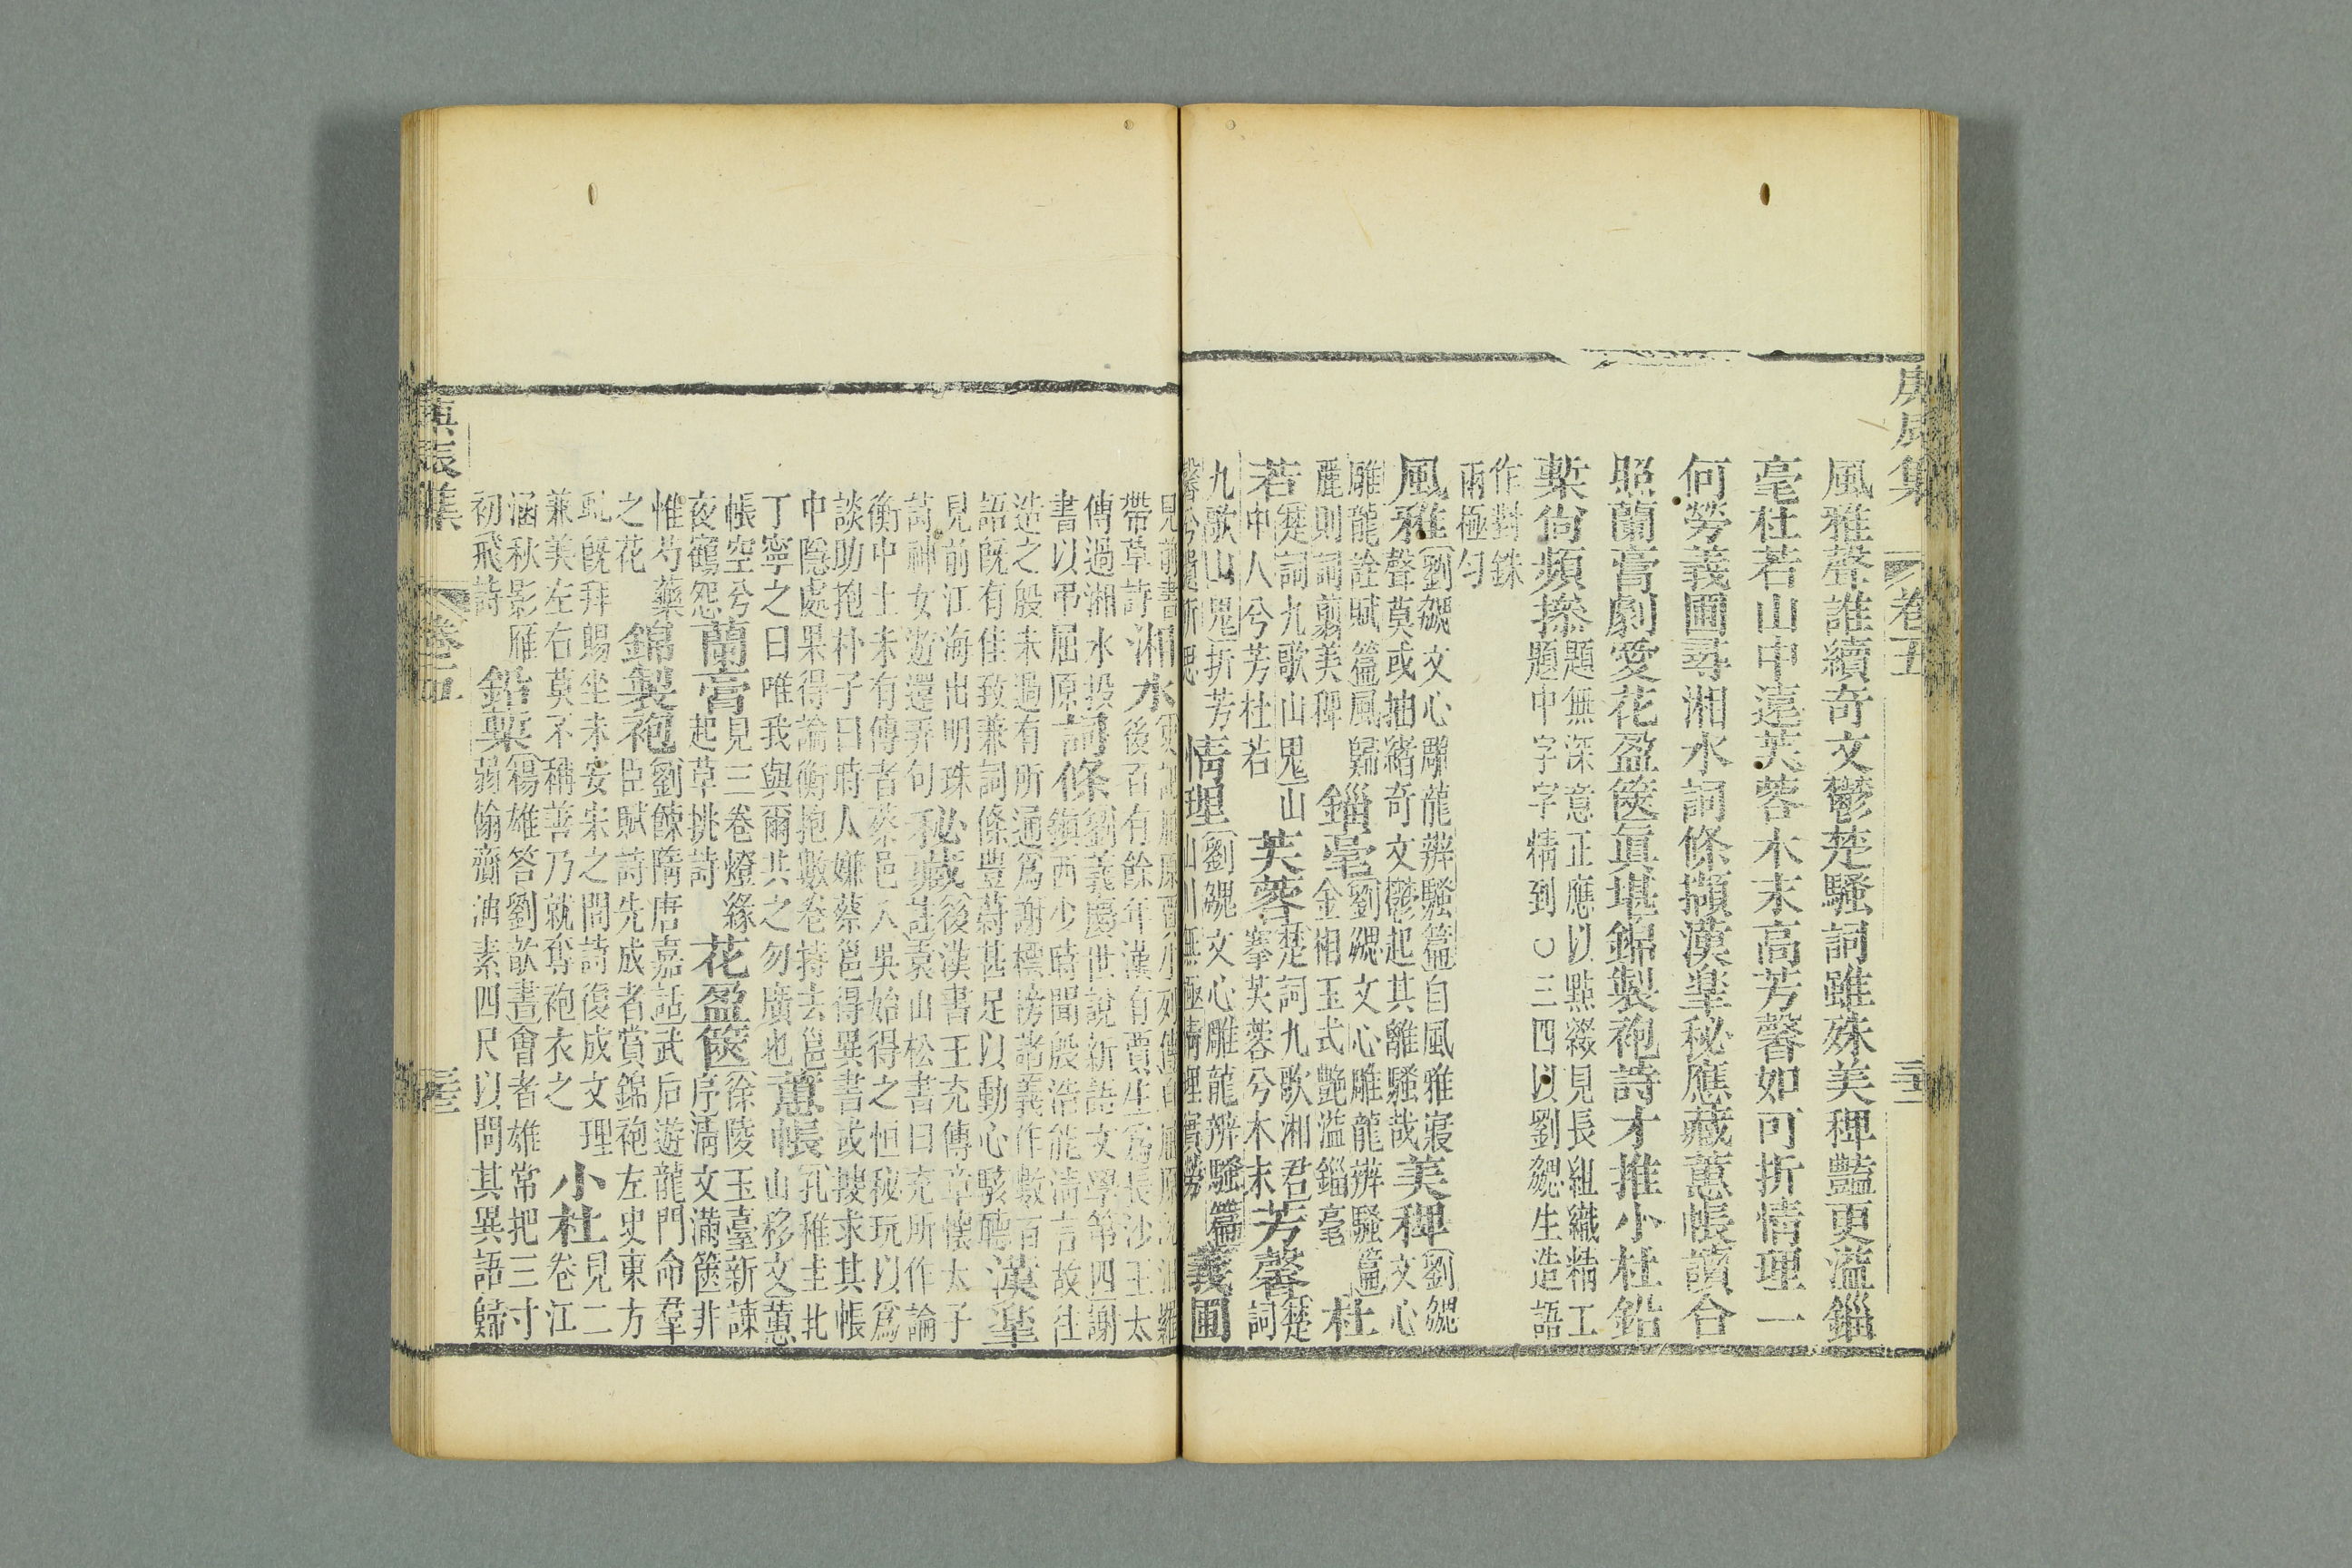 庚辰集 卷五
風雅聲誰續奇文鬱楚騷詞雖殊美稗豔更溢錙
毫杜若山中遠芙蓉木末高芳馨如可折情理一
何勞義圃尋湘水詞條擷漢臯秘應藏蕙帳讀合
照蘭膏劇愛花盈篋眞堪錦製袍詩才推小杜鉛
槧尙頻搽題無深意正應以點綴見長組織精工
題中字字精到○三四以劉勰生造語
作對銖
兩極勻
風雅劉勰文心雕龍辨騷篇自風雅寢
聲莫或抽緒奇文鬱起其離騷哉美稗劉勰
文心
雕龍詮賦篇風歸
麗則詞翦美稗錙毫劉勰文心雕龍辨騷篇
金相玉式豔溢錙毫杜
若楚詞九歌山鬼山
中人兮芳杜若芙蓉楚詞九歌湘君
搴芙蓉兮木末芳馨楚
詞
九歌山鬼折芳
馨兮遺所思情理劉勰文心雕龍辨騷篇
山川無極情理實勞義圃
見前書
帶草詩湘水
後百有餘年漢有賈生爲長沙王太
傅過湘水投
書以弔屈原詞條劉義慶世說新語文學第四謝
鎭西少時聞殷浩能淸言故往
造之殷未過有所通爲謝標榜諸義作數百
語旣有佳致兼詞條豐蔚甚足以動心駭聽漢臯
見前江海出明珠
詩神女遊還弄句秘藏後漢書王充傳章懷太子
註袁山松書曰充所作論
衡中土未有傳者蔡邕入吳始得之恒秘玩以爲
談助抱朴子曰時人嫌蔡邕得異書或搜求其帳
中隱處果得論衡抱數卷持去邕
丁寧之曰唯我與爾共之勿廣也蕙帳孔稚圭北
山移文蕙
帳空兮
夜鶴怨蘭膏見三卷燈緣
起草挑詩花盈篋徐陵玉臺新詠
序淸文滿篋非
惟芍藥
之花錦製袍劉餗隋唐嘉話武后遊龍門命羣
臣賦詩先成者賞錦袍左史東方
虬旣拜賜坐未安宋之問詩復成文理
兼美左右莫不稱善乃就奪袍衣之小杜見二
卷江
涵秋影雁
初飛詩鉛槧楊雄答劉歆書會者雄常把三寸
弱翰齎油素四尺以問其異語歸
庚辰集 卷五